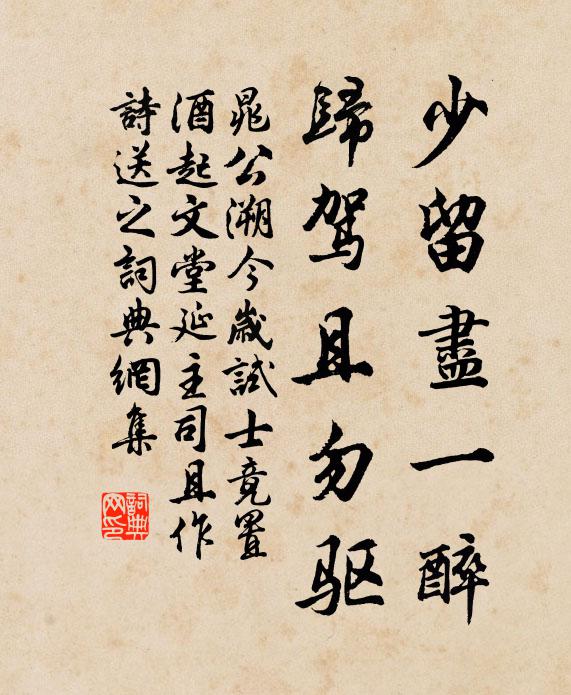 少留盡一醉
歸驾且勿驱
晁公溯今歲試士竟置
酒起文堂延主司且作
詩送之詞典網集
詞典网印